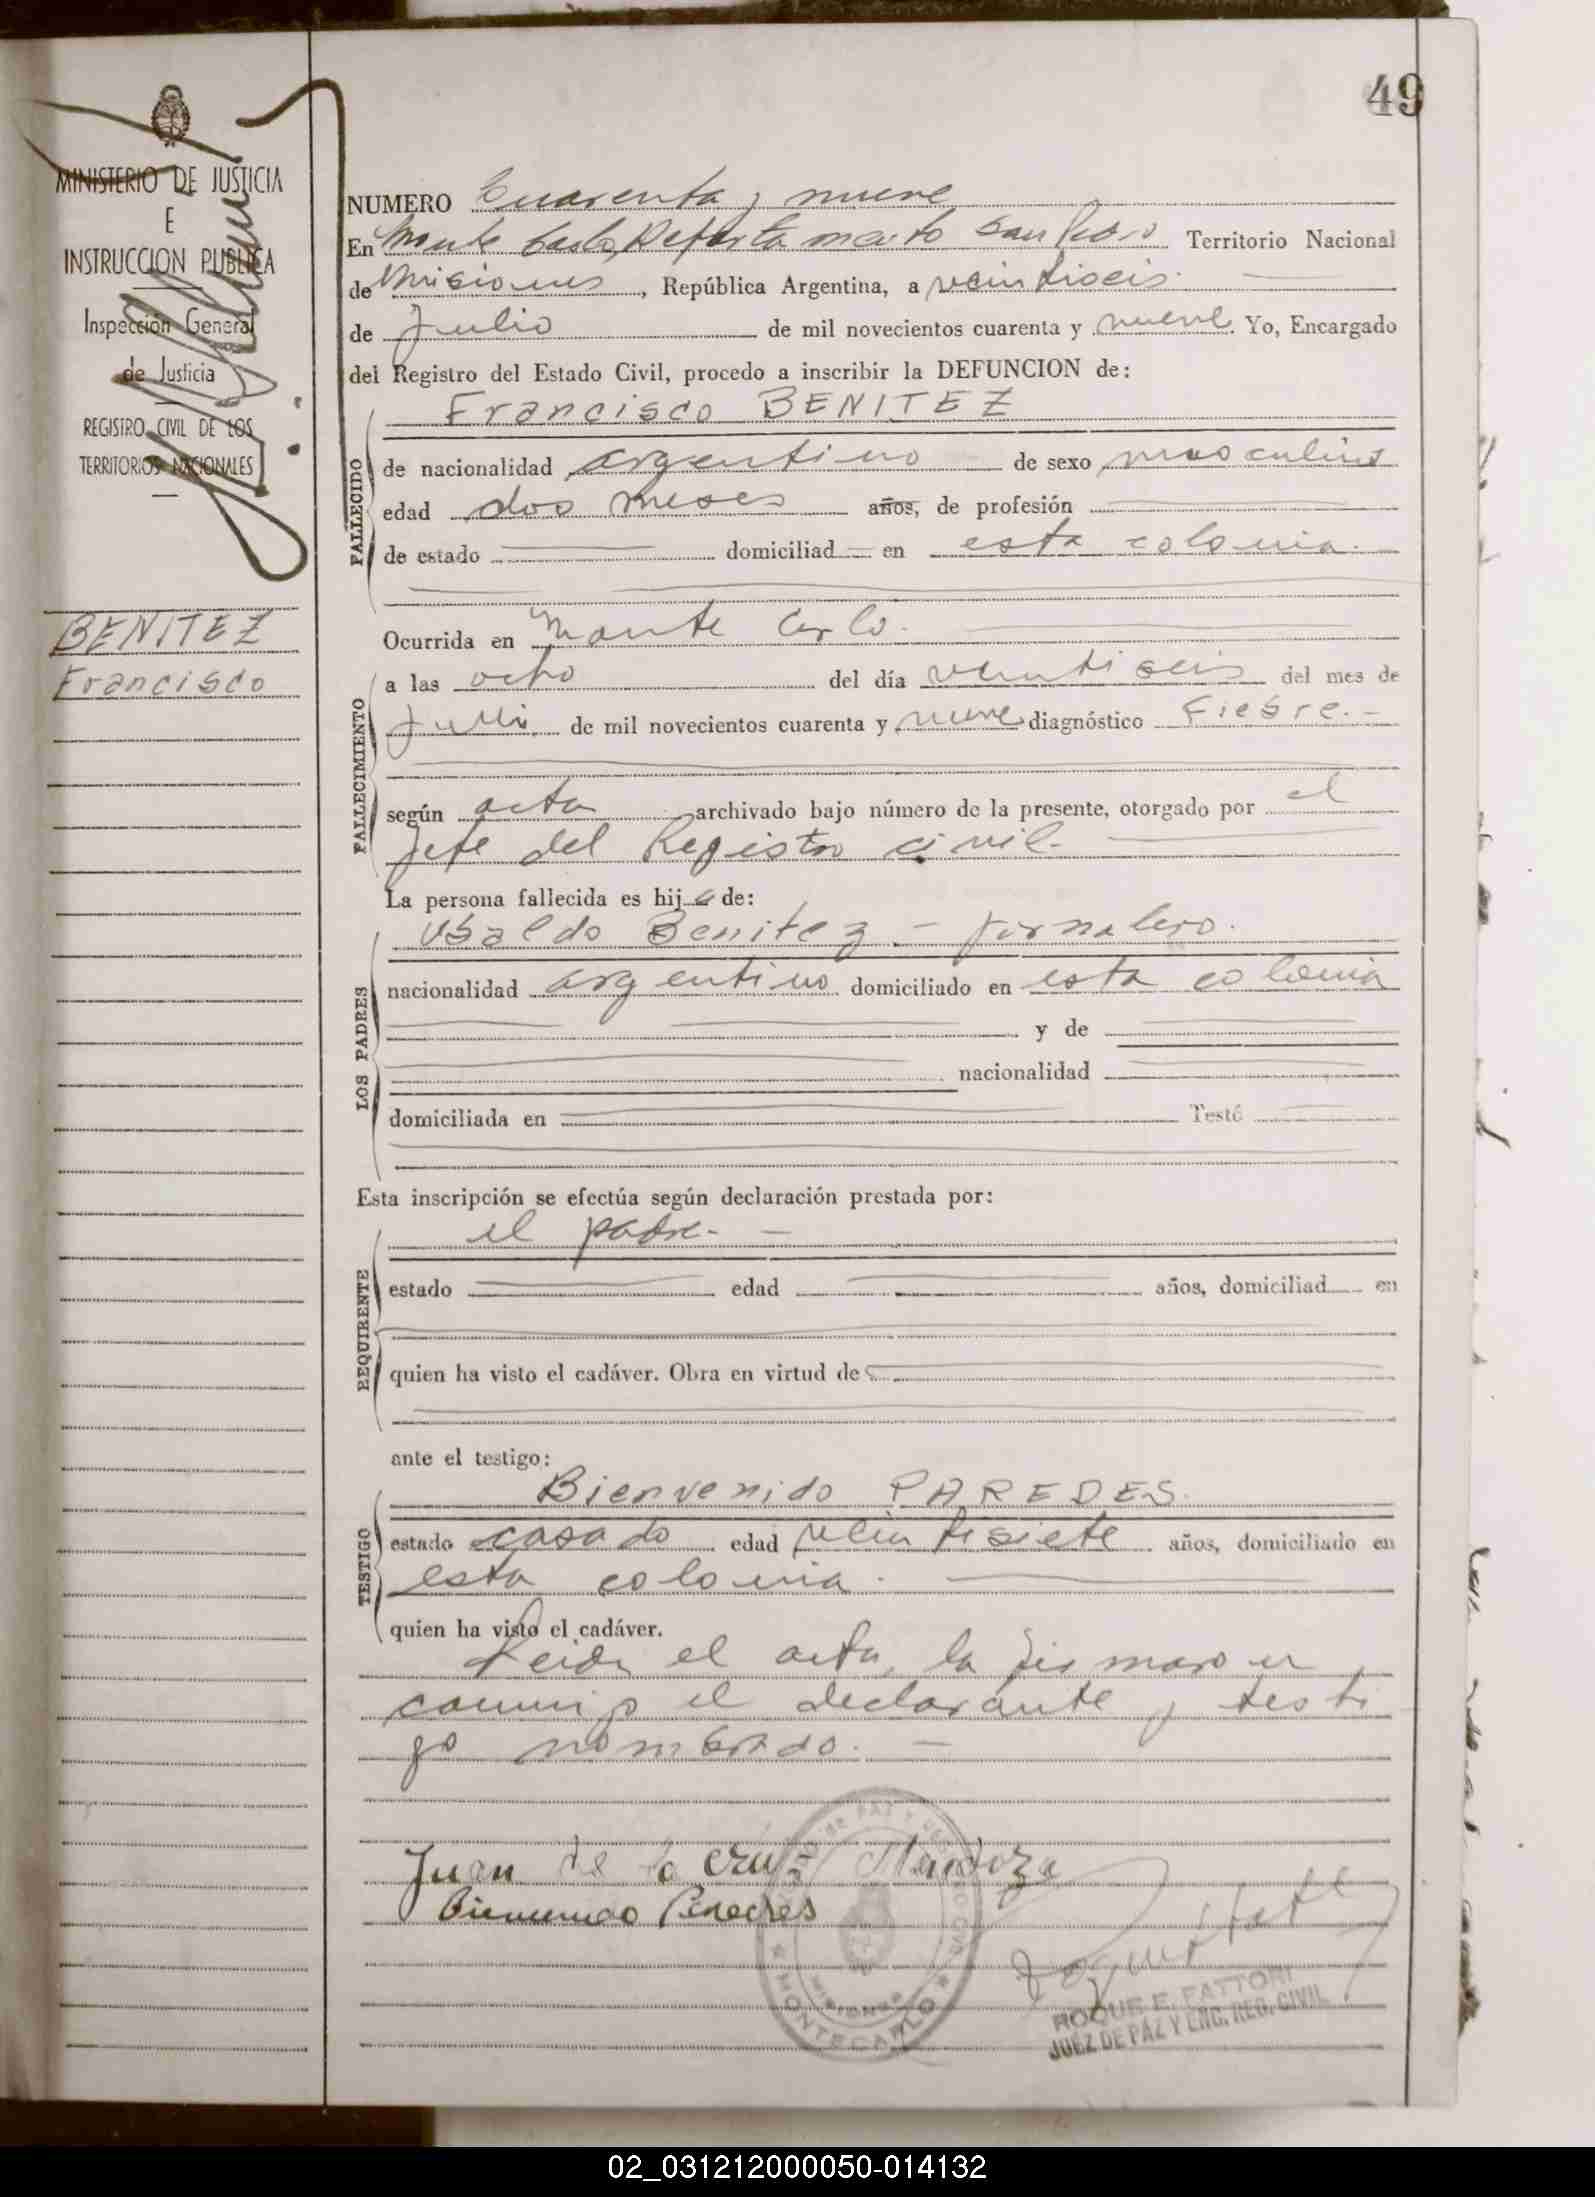 49
MINISTERIO DE JUSTICIA
E
INSTRUCCION PUBLICA
Inspección General
de Justicia
REGISTRO CIVIL DE LOS
TERRITORIOS NACIONALES
BENITEZ
Francisco
NUMERO Cuarenta y nueve
En Monte Carlo, Departamento San Pedro Territorio Nacional
de Misiones, República Argentina, a veintiseis
de Julio de mil novecientos cuarenta y nueve. Yo, Encargado
del Registro del Estado Civil, procedo a inscribir la DEFUNCION de:
Francisco BENITEZ
FALLECIDO
de nacionalidad argentino de sexo masculino
edad dos meses años, de profesión
de estado domiciliad en esta colonia.
Ocurrida en Monte Carlo.
FALLECIMIENTO
a las ocho del día veintiseis del mes de
Julio de mil novecientos cuarenta y nueve diagnóstico Fiebre.-
según acta archivado bajo número de la presente, otorgado por el
Jefe del Registro civil.
La persona fallecida es hijo de:
LOS PADRES
Ubaldo Benitez - jornalero.
nacionalidad argentino domiciliado en esta colonia
y de
nacionalidad
domiciliada en Testé
Esta inscripción se efectúa según declaración prestada por:
REQUIRENTE
el padre. -
estado edad años, domiciliad en
quien ha visto el cadáver. Obra en virtud de
ante el testigo:
TESTIGO
Bienvenido PAREDES.
estado casado edad veintisiete años, domiciliado en
esta colonia.
quien ha visto el cadáver.
Leida el acta, la firmaron
conmigo el declarante y testi
go nombrado. -
Juan de la cruz Mendoza
Bienvenido Paredes
JUZGADO de PAZ Y REGISTRO CIVIL
MISIONES
MONTECARLO
ROQUE E. FATTORI
JUEZ DE PAZ Y ENC. REG. CIVIL
02_031212000050-014132